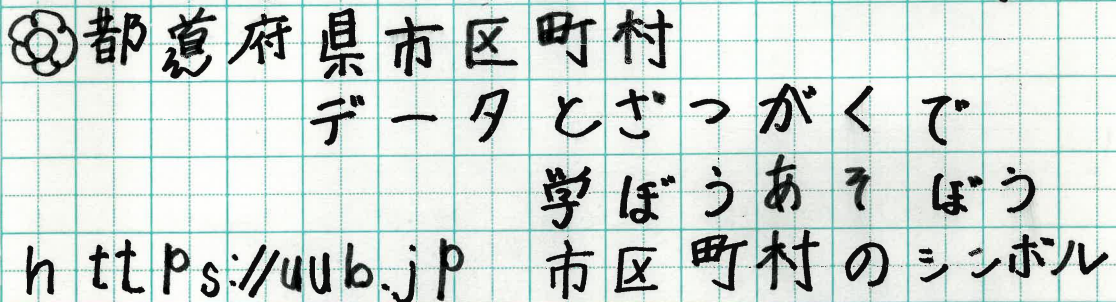 都道府県市区町村
データとざつがくで
学ぼうあそぼう
https://uub.jp 市区町村のシンボル